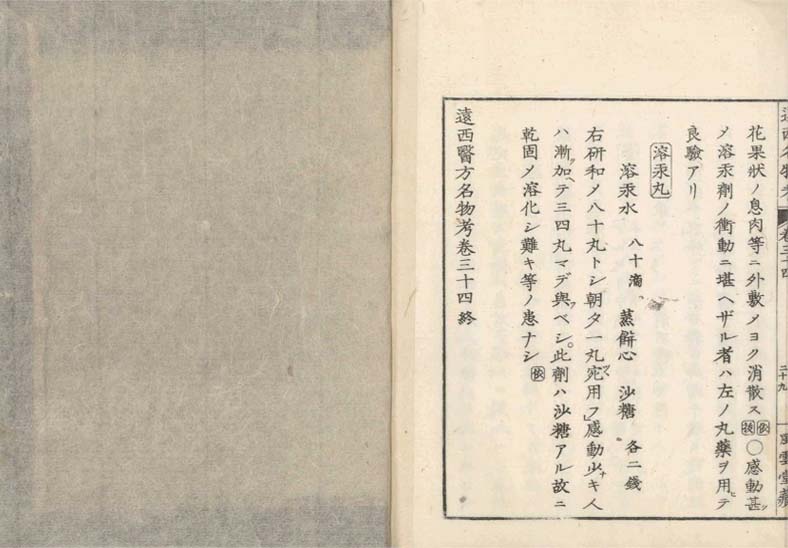 花果狀ノ息肉等ニ外敷メヨク消散ス 依 扶 〇感動甚シ
メ溶汞劑ノ衝動ニ堪ヘザル者ハ左ノ丸藥ヲ用ヒテ
良驗アリ
溶汞丸
溶汞水 八十滴 蒸餅心 沙糖 各二錢
右研和メ八十丸トシ朝夕一丸宛ヅツ用フ」感動少ナキ人
ハ漸加ヘテ三四丸マデ與フベシ。此劑ハ沙糖アル故ニ
乾固メ溶化シ難キ等ノ患ナシ 依
遠西醫方名物考卷三十四 終
卷三十四
二十九
風雲堂藏